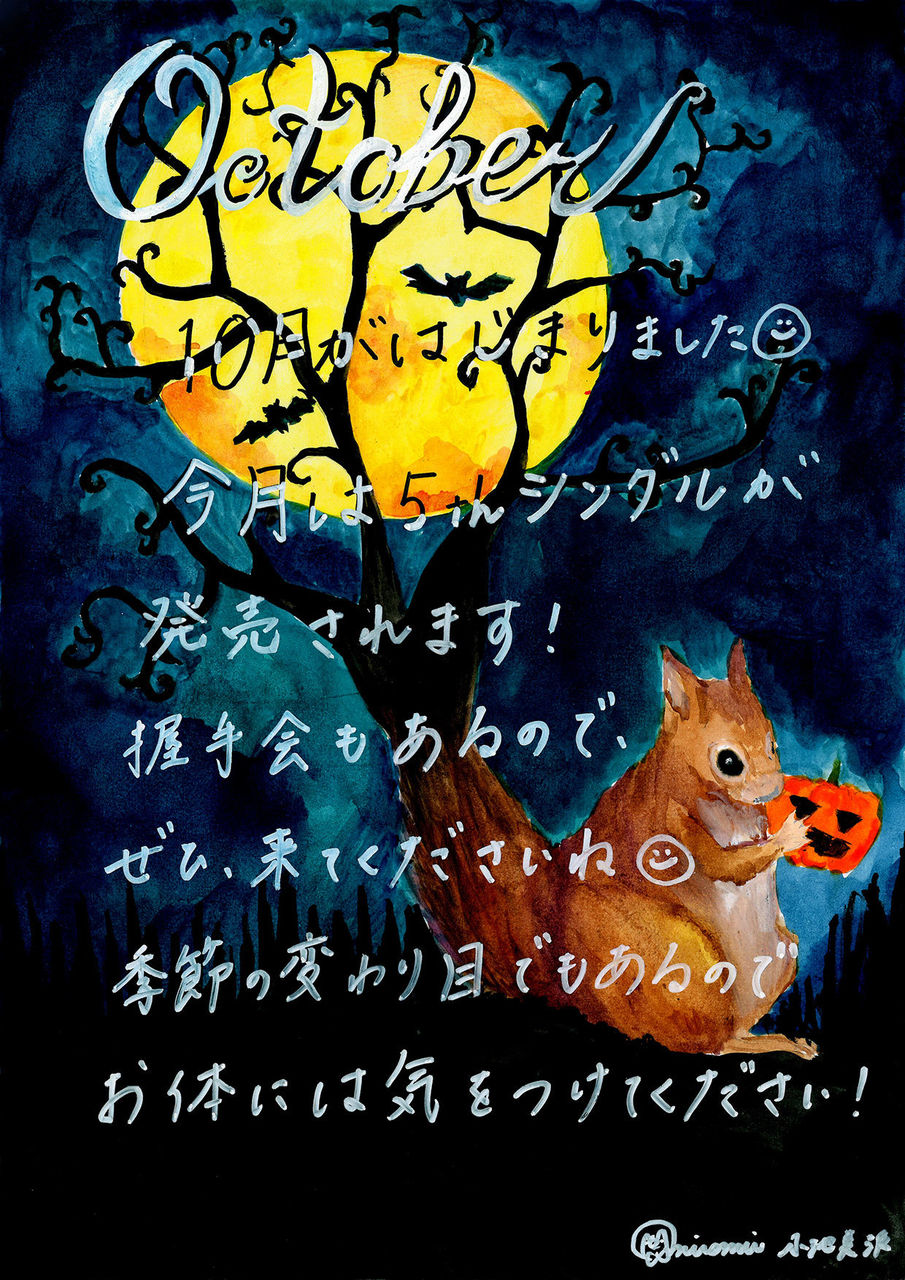 October
10月がはじまりました
今月は5thシングルが
発売されます!
握手会もあるので、
ぜひ、来てくださいね
季節の変わり目でもあるので
お体には気をつけてください!
小池美波